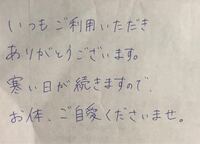 いつもご利用いただき
ありがとうございます。
寒い日が続きますので、
お体、ご自愛くださいませ。